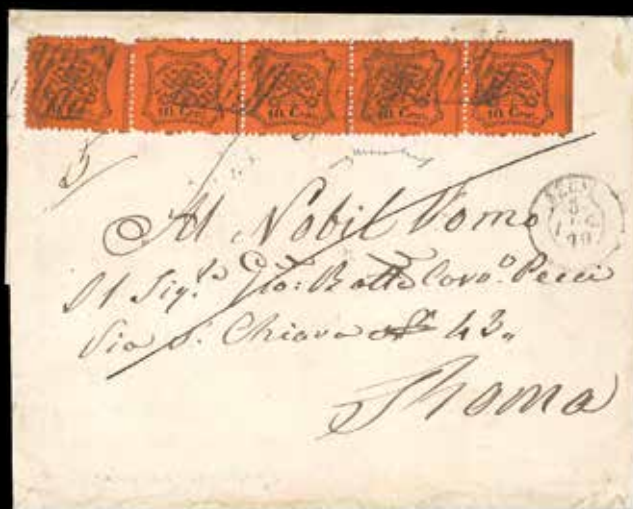 10 Cent. 10 Cent. 10 Cent. 10 Cent.
5
Al Nobil Uomo
Il Sig.r Gio: Batta Cav.o Pecci
Via S. Chiara 42
Roma